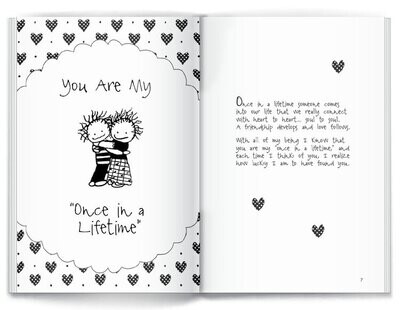 You Are My
"Once in a
Lifetime"
Once in a lifetime someone comes
into our life that we really connect
with heart to heart... soul to soul.
A friendship develops and love follows.
With all of my being I know that
you are my "once in a lifetime," and
each time I think of you, I realize
how lucky I am to have found you.
7